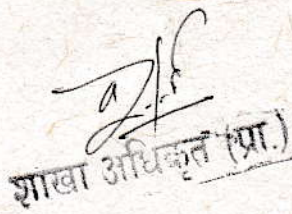 शाखा अधिकृत (प्रा.)